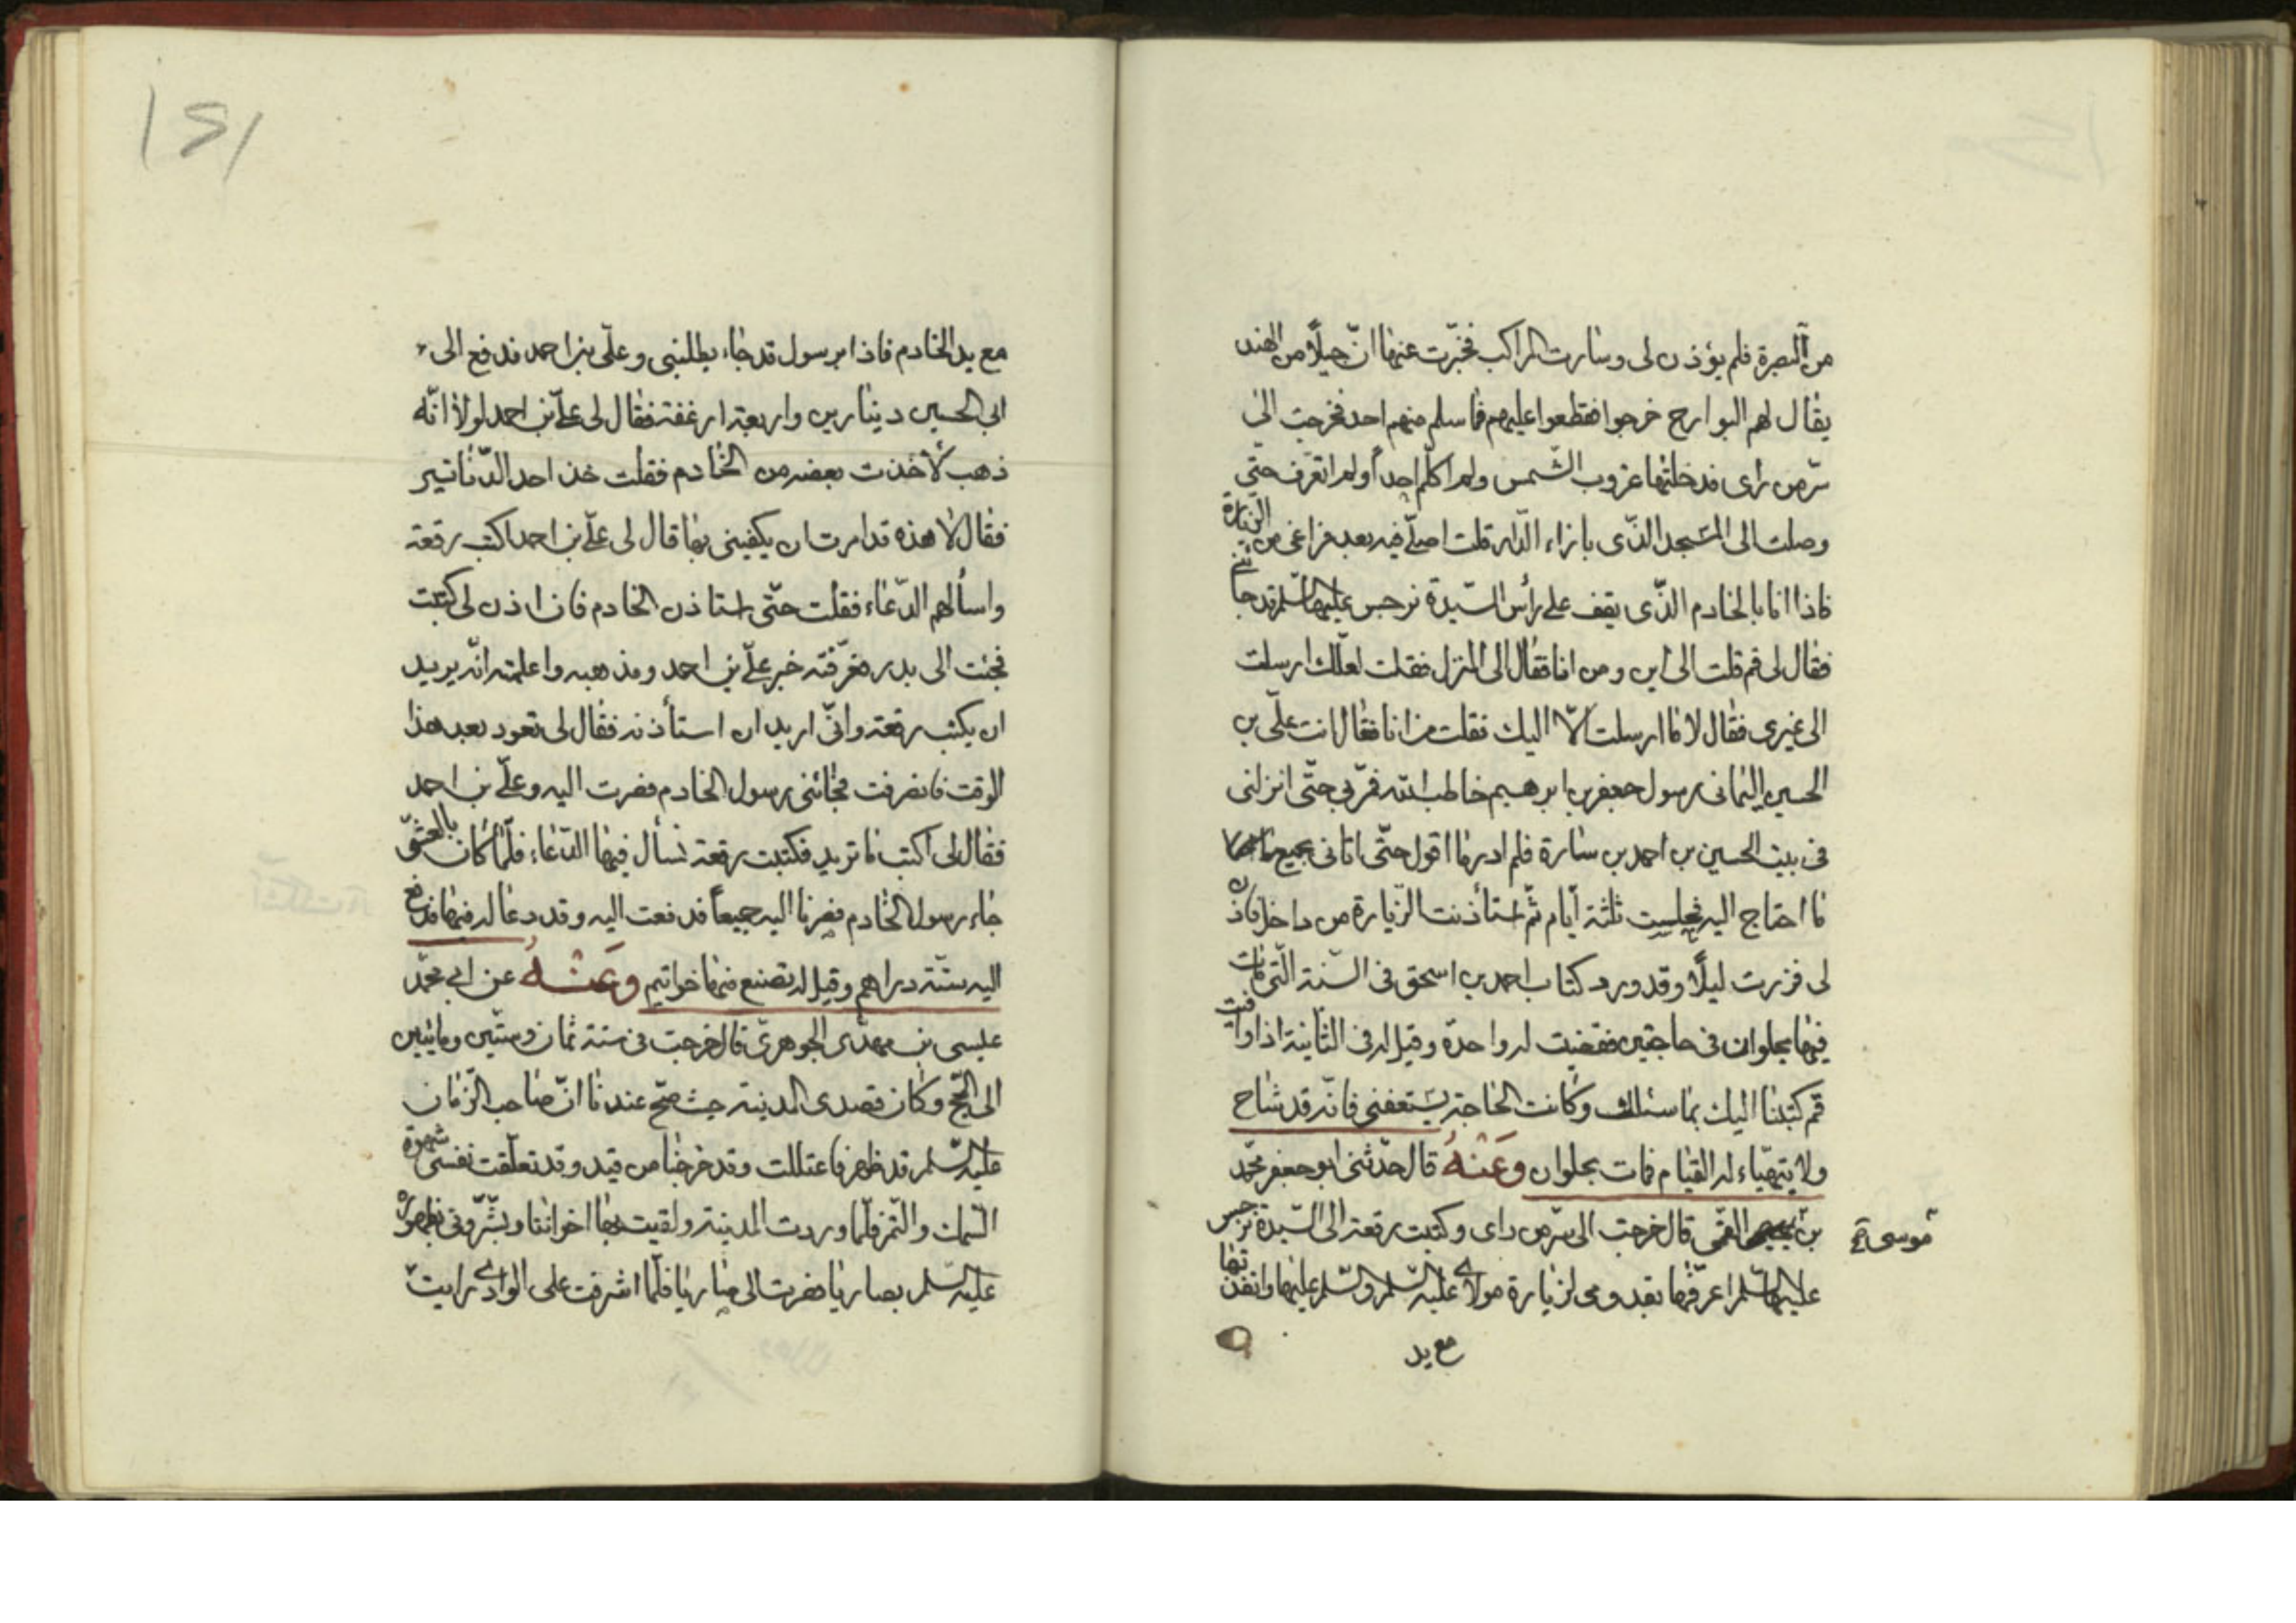 من البصرة فلم يؤذن لى وسارت المراكب فخبّرت عنها انّ جيلاً من الهند
يقال لهم البوارح خرجوا فقطعوا عليهم فما سلم منهم احد فخرجت الى
سرّ من راى فدخلتها غروب الشّمس ولم اكلّم احداً ولم اتعرّف حتّى
وصلت الى المسجد الذّى بازاء الدّار قلت اصلّى فيه بعد فراغى من الزيارة
فاذا انا بالخادم الذّى يقف على رأس السّيدة نرجس عليها السّلم قد جائنى
فقال لى قم قلت الى اين ومن انا فقال الى المنزل فقلت لعلّك ارسلت
الى غيرى فقال لا ما ارسلت الاّ اليك فقلت من انا فقال انت علّى بن
الحسين اليمانى رسول جعفر بن ابرهيم خاطب الله فمرّ بى حتّى انزلنى
فى بيت الحسين بن احمد بن سارة فلم ادر ما اقول حتّى اتانى بجميع
ما احتاج اليه فجلست ثلثة ايّام ثمّ استأذنت الزّيارة من داخل فاذن
لى فزرت ليلاً وقد ورد كتاب احمد بن اسحق فى السّنة الّتى مات
فيها بحلوان فى حاجتين فقضيت له واحدة وقيل له فى الثانية اذا وافيت
قم كتبنا اليك بما سئلت وكانت الحاجة يستعفنى فانّه قد شاخ
ولا يتهيّاء له القيام فمات بحلوان وَعَنْهُ قال حدّثنى ابو جعفر محمّد
بن القمّى قال خرجت الى سرّ من راى وكتبت رقعة الى السّيدة نرجس
موسى
عليها السّلم اعرّفها بقدومى لزيارة مولاى عليه السّلم والسّلم عليها وانفذتها
مع يد
١٤١
مع يد الخادم فاذا برسول قد جاء يطلبنى وعلّى بن احمد فدفع الى
ابى الحسين دينارين واربعة ارغفة فقال لى علىّ بن احمد لولا انّه
ذهب لأخذت بعضه من الخادم فقلت خذ احد الدّنانير
فقال لا هذه قد امرت ان يكفينى بها قال لى علىّ بن احمد اكتب رقعة
واسألهم الدّعاء فقلت حتّى استاذن الخادم فان اذن لى كتبت
فجئت الى بدر فعرّفته خبر علىّ بن احمد ومذهبه واعلمته انّه يريد
ان يكتب رقعة وانّى اريد ان استأذنه فقال لى تعود بعد هذا
الوقت فانصرفت فجائنى رسول الخادم فصرت اليه وعلىّ بن احمد
فقال لى اكتب ما تريد فكتبت رقعة نسأل فيها الدّعاء فلمّا كان بالعشىّ
جاء رسول الخادم فصرنا اليه جميعاً فدفعت اليه وقد دعا له فيها فدفع
اليه ستّة دراهم وقيل له تصنع منها خواتيم وَعَنْهُ عن ابى محمّد
عيسى بن مهدى الجوهرىّ قال خرجت فى سنة ثمان وستّين ومايتين
الى الحّج وكان قصدى المدينة حيث صّح عندنا انّ صاحب الزّمان
عليه السّلم قد ظهر فاعتللت وقد خرجنا من فيد وقد تعلّقت نفسى شهوة
السّمك والتّمر فلمّا وردت المدينة ولقيت بها اخواننا وبشّرونى بظهوره
عليه السّلم بصاريا فصرت الى صاريا فلمّا اشرفت على الوادى رايت